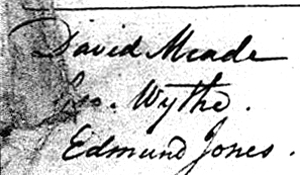 David Meade
Geo. Wythe.
Edmund Jones.